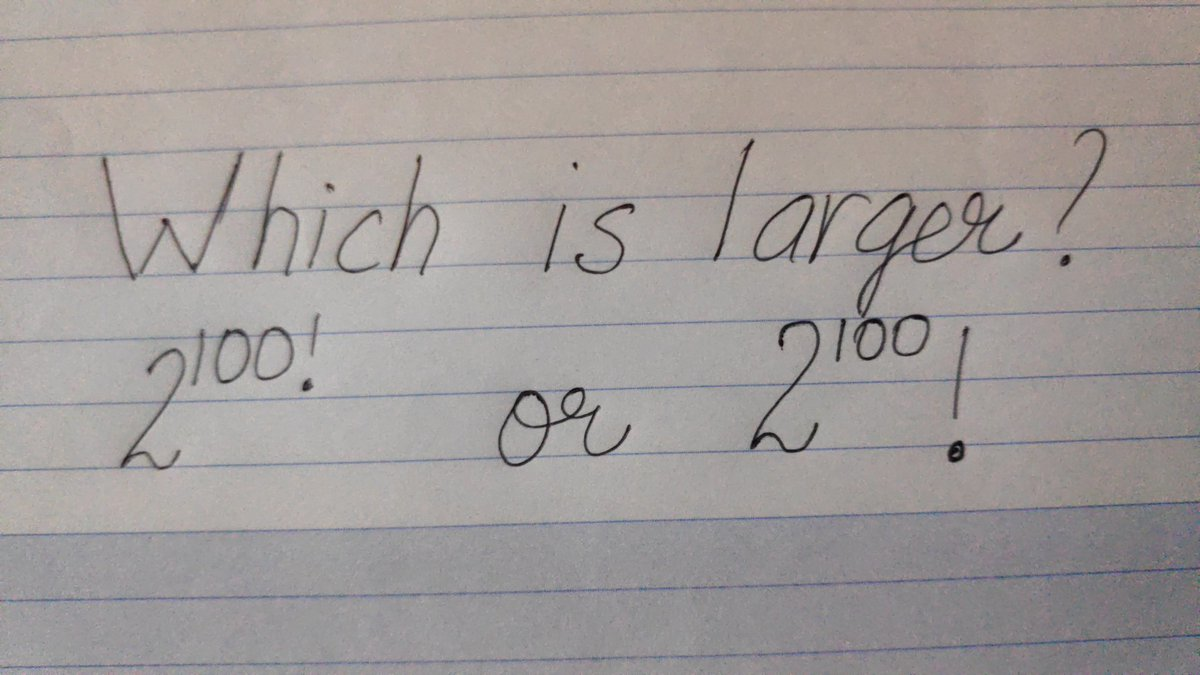 Which is larger?
2¹⁰⁰! or 2¹⁰⁰!